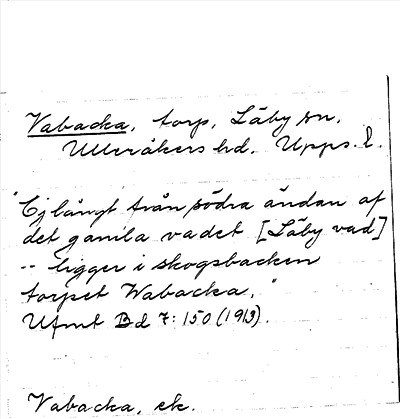 Vabacka, torp, Läby sn.
Ulleråkers hd. Upps. l.
"Ej långt från södra ändan af
det gamla vadet [Läby vad]
-- ligger i skogsbacken
torpet Wabacka."
Ufmt Bd 7: 150 (1913).
Vabacka, ek.